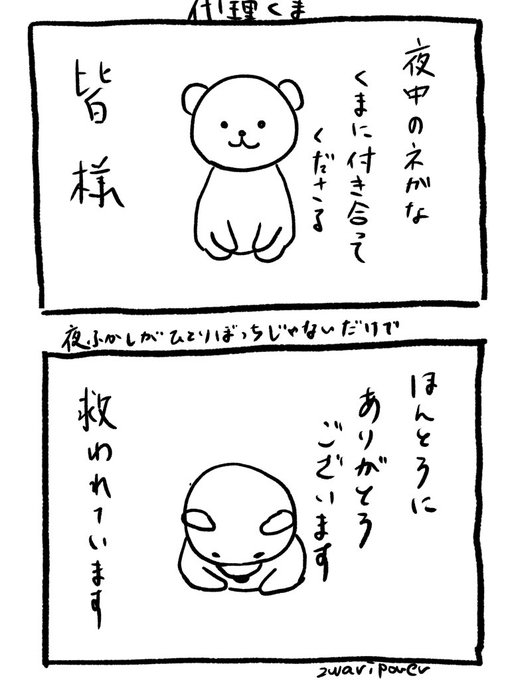 代理くま
夜中のネガな
くまに付き合って
くださる
皆様
夜ふかしがひとりぼっちじゃないだけで
ほんとうに
ありがとう
ございます
救われています
2waripower